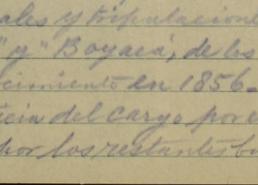 ales y tripulacione
" y "Boyacá, de los
cimiento en 1856-
cia del cargo por e
por los restantes bu